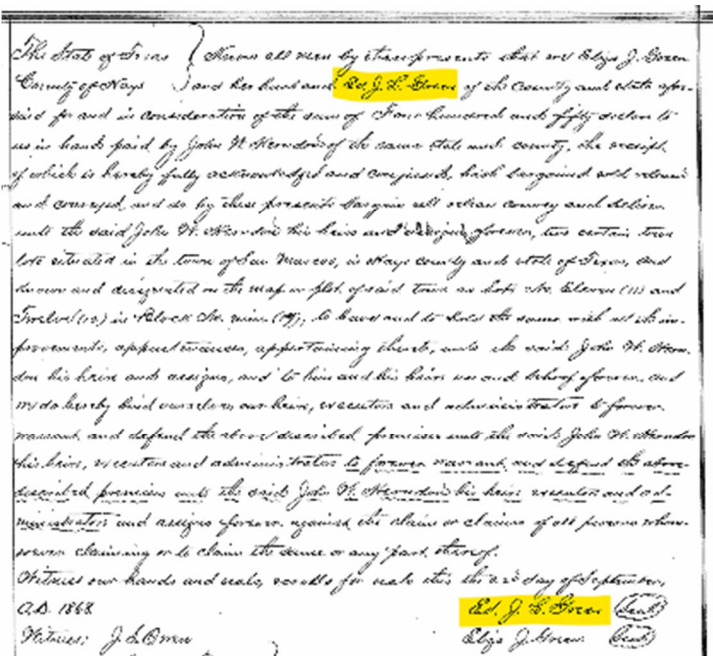 The State of Texas } Know all men by these presents that we Eliza J. Green
County of Hays } and her husband Ed. J. L. Green of the County and state afore-
said for and in consideration of the sum of Four hundred and fifty dollars to
us in hand paid by John W. Herndon of the same state and county, the receipt
of which is hereby fully acknowledged and confessed, hath bargained sold released
and conveyed, and do by these presents bargain sell release convey and deliver
unto the said John W. Herndon his heirs and assigns forever, two certain town
lots situated in the town of San Marcos, in Hays county and state of Texas, and
known and designated on the map or plat of said town as lots No. Eleven (11) and
Twelve (12) in Block No. nine (9), to have and to hold the same with all the im-
provements, appurtenances, appertaining thereto, unto the said John W. Hern-
don his heirs and assigns, and to him and his heirs use and behoof forever. and
we do hereby bind ourselves, our heirs, executors and administrators to forever
warrant, and defend the above described premises unto the said John W. Herndon
his heirs, executors and administrators to forever warrant, and defend the above
described premises unto the said John W. Herndon his heirs executors and ad-
ministrators and assigns forever against the claim or claims of all persons whom-
soever claiming or to claim the same or any part thereof.
Witness our hands and seals, scrolls for seals this the day of September,
A.D. 1868. Ed. J. L. Green (Seal)
Witness: J. L. Eliza J. Green (Seal)